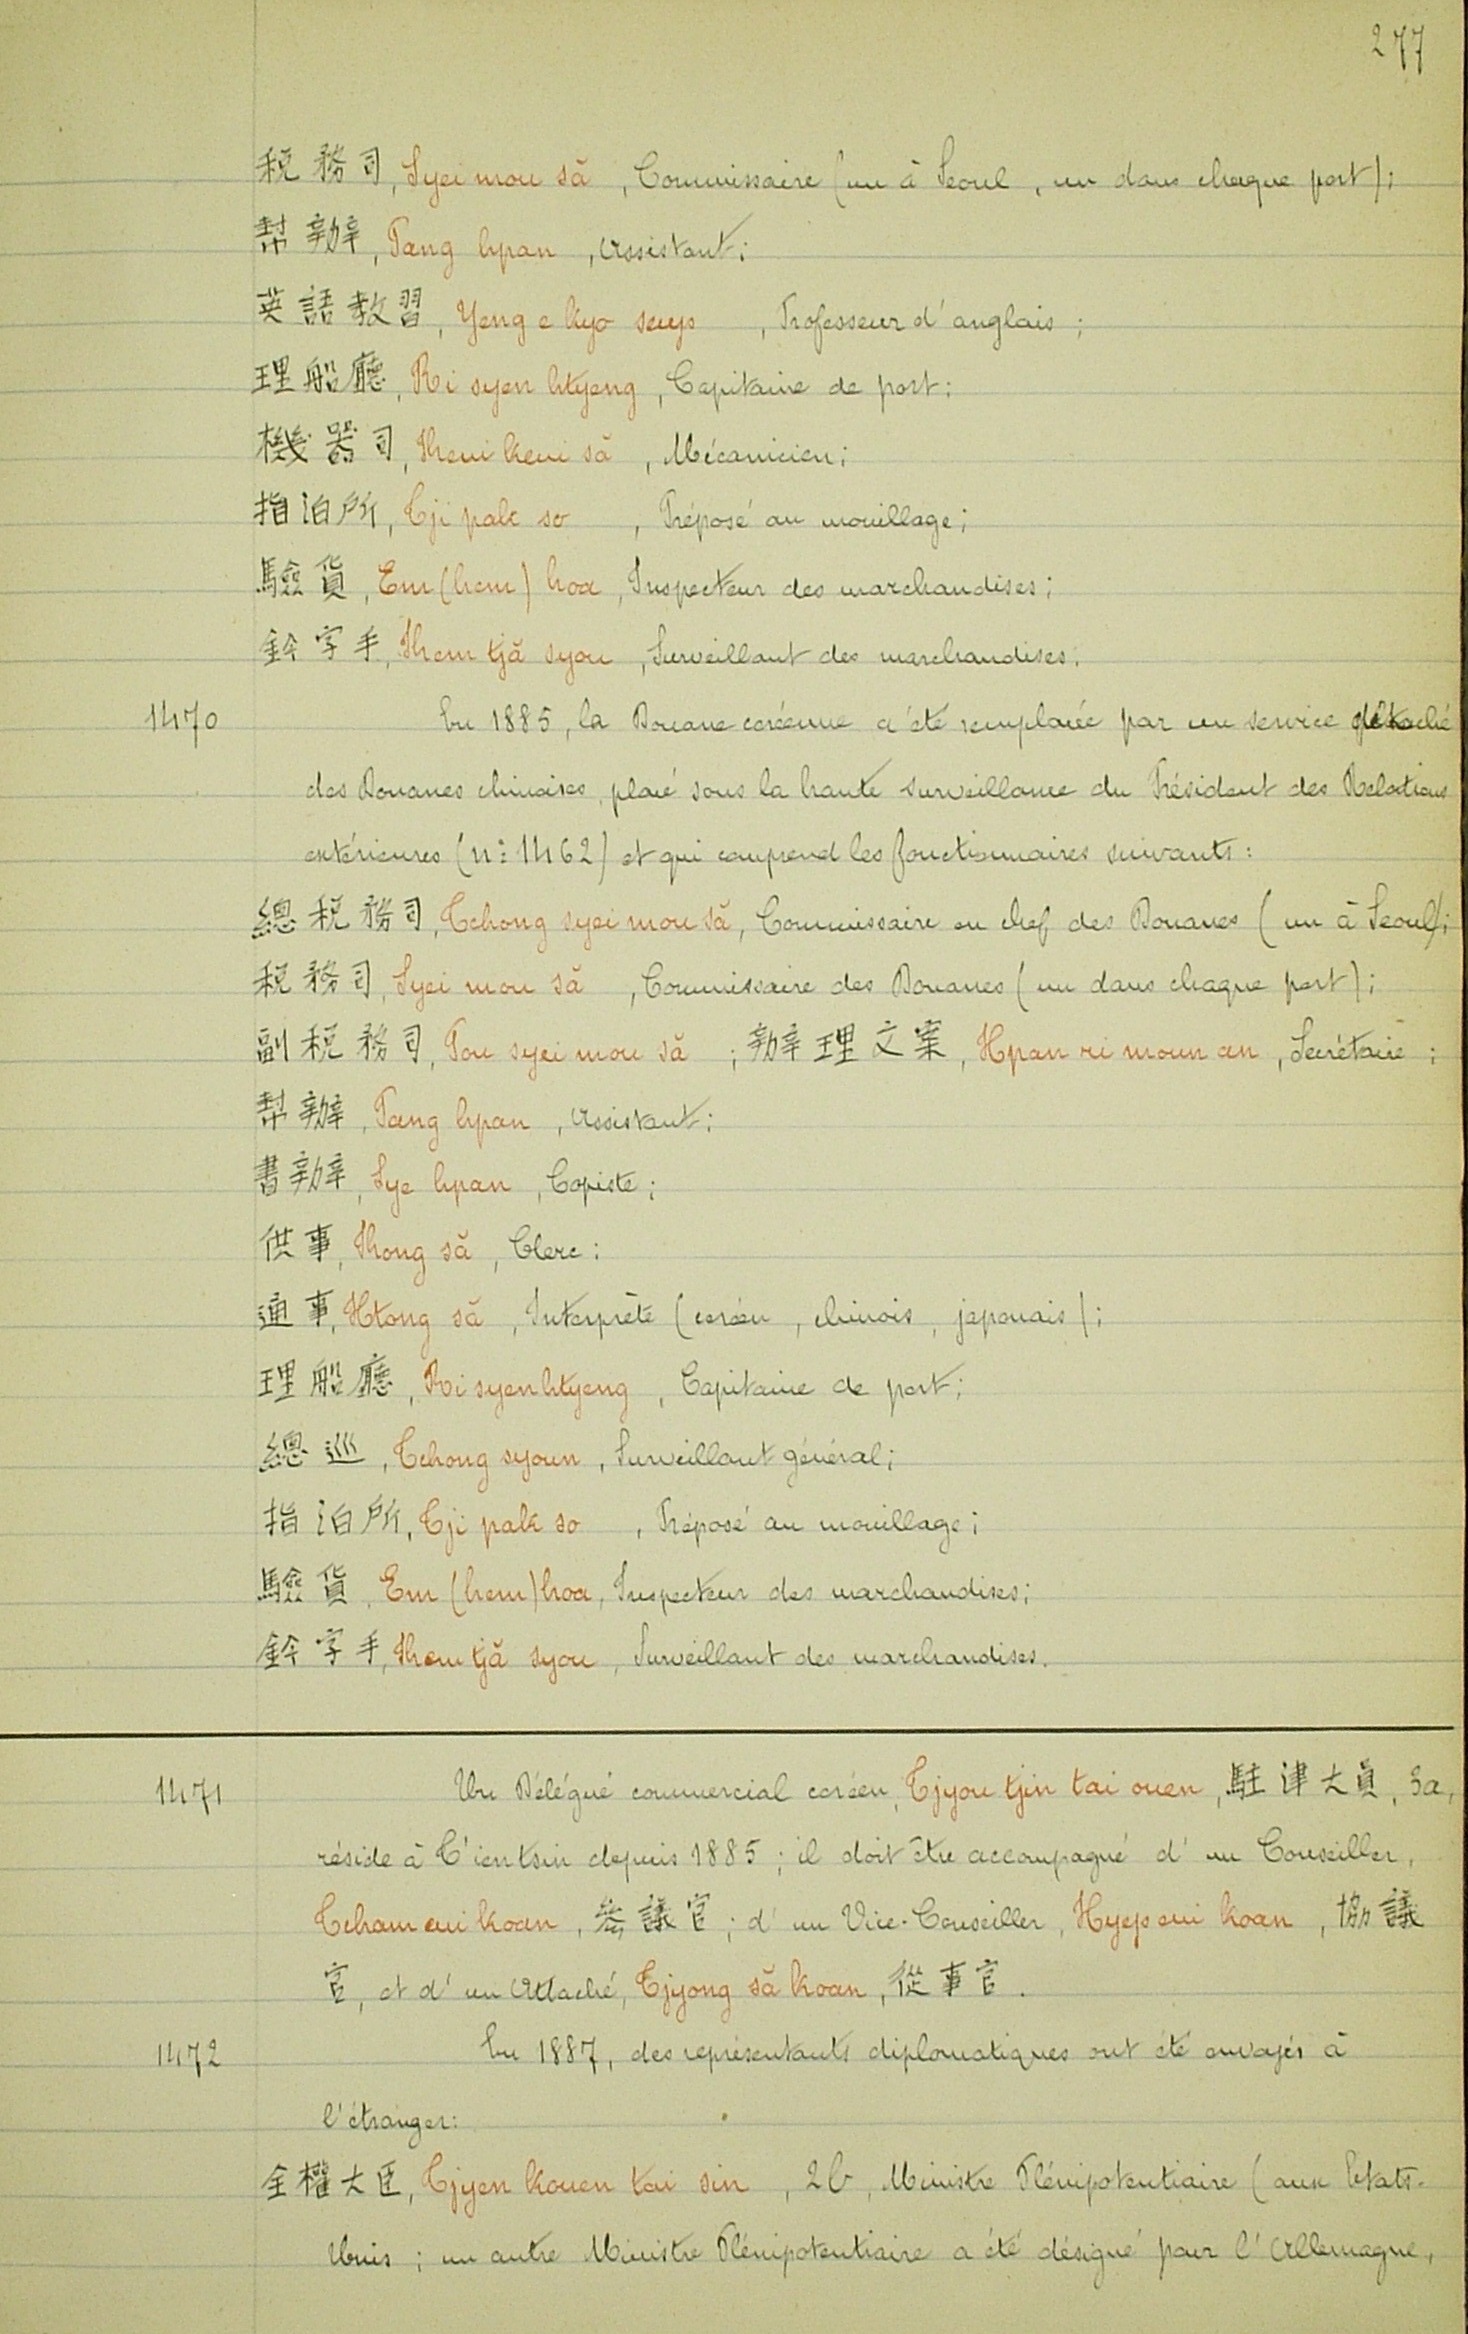 277
稅務司, Syei mou să, Commissaire (un à Seoul, un dans chaque port);
幫辦, Pang hpan, Assistant;
英語教習, Yeng e kyo seup, Professeur d'anglais;
理船廳, Ri syen htyeng, Capitaine de port;
機器司, Keui keui să, Mécanicien;
指泊所, Tji pak so, Préposé au mouillage;
驗貨, Em (hem) hoa, Inspecteur des marchandises;
鈐字手, Kem tjă syou, Surveillant des marchandises.
1470 En 1885, la Douane coréenne a été remplacée par un service détaché
des Douanes chinoises, placé sous la haute surveillance du Président des Relations
extérieures (n: 1462) et qui comprend les fonctionnaires suivants:
總稅務司, Tchong syei mou să, Commissaire en chef des Douanes (un à Seoul);
稅務司, Syei mou să, Commissaire des Douanes (un dans chaque port);
副稅務司, Pou syei mou să; 辦理文案, Hpan ri moun an, Secrétaire;
幫辦, Pang hpan, Assistant;
書辦, Sye hpan, Copiste;
供事, Kong să, Clerc;
通事, Htong să, Interprète (coréen, chinois, japonais);
理船廳, Ri syen htyeng, Capitaine de port;
總巡, Tchong syoun, Surveillant général;
指泊所, Tji pak so, Préposé au mouillage;
驗貨, Em (hem) hoa, Inspecteur des marchandises;
鈐字手, Kem tjă syou, Surveillant des marchandises.
1471 Un Délégué commercial coréen, Tjyou tjin tai ouen, 駐津大員, 3a,
réside à T'ientsin depuis 1885; il doit être accompagné d'un Conseiller,
Tcham eui koan, 叅議官; d'un Vice-Conseiller, Hyep eui koan, 協議
官, et d'un Attaché, Tjyong să koan, 從事官.
1472 En 1887, des représentants diplomatiques ont été envoyés à
l'étranger:
全權大臣, Tjyen kouen tai sin, 2b, Ministre Plénipotentiaire (aux Etats-
Unis; un autre Ministre Plénipotentiaire a été désigné pour l'Allemagne,